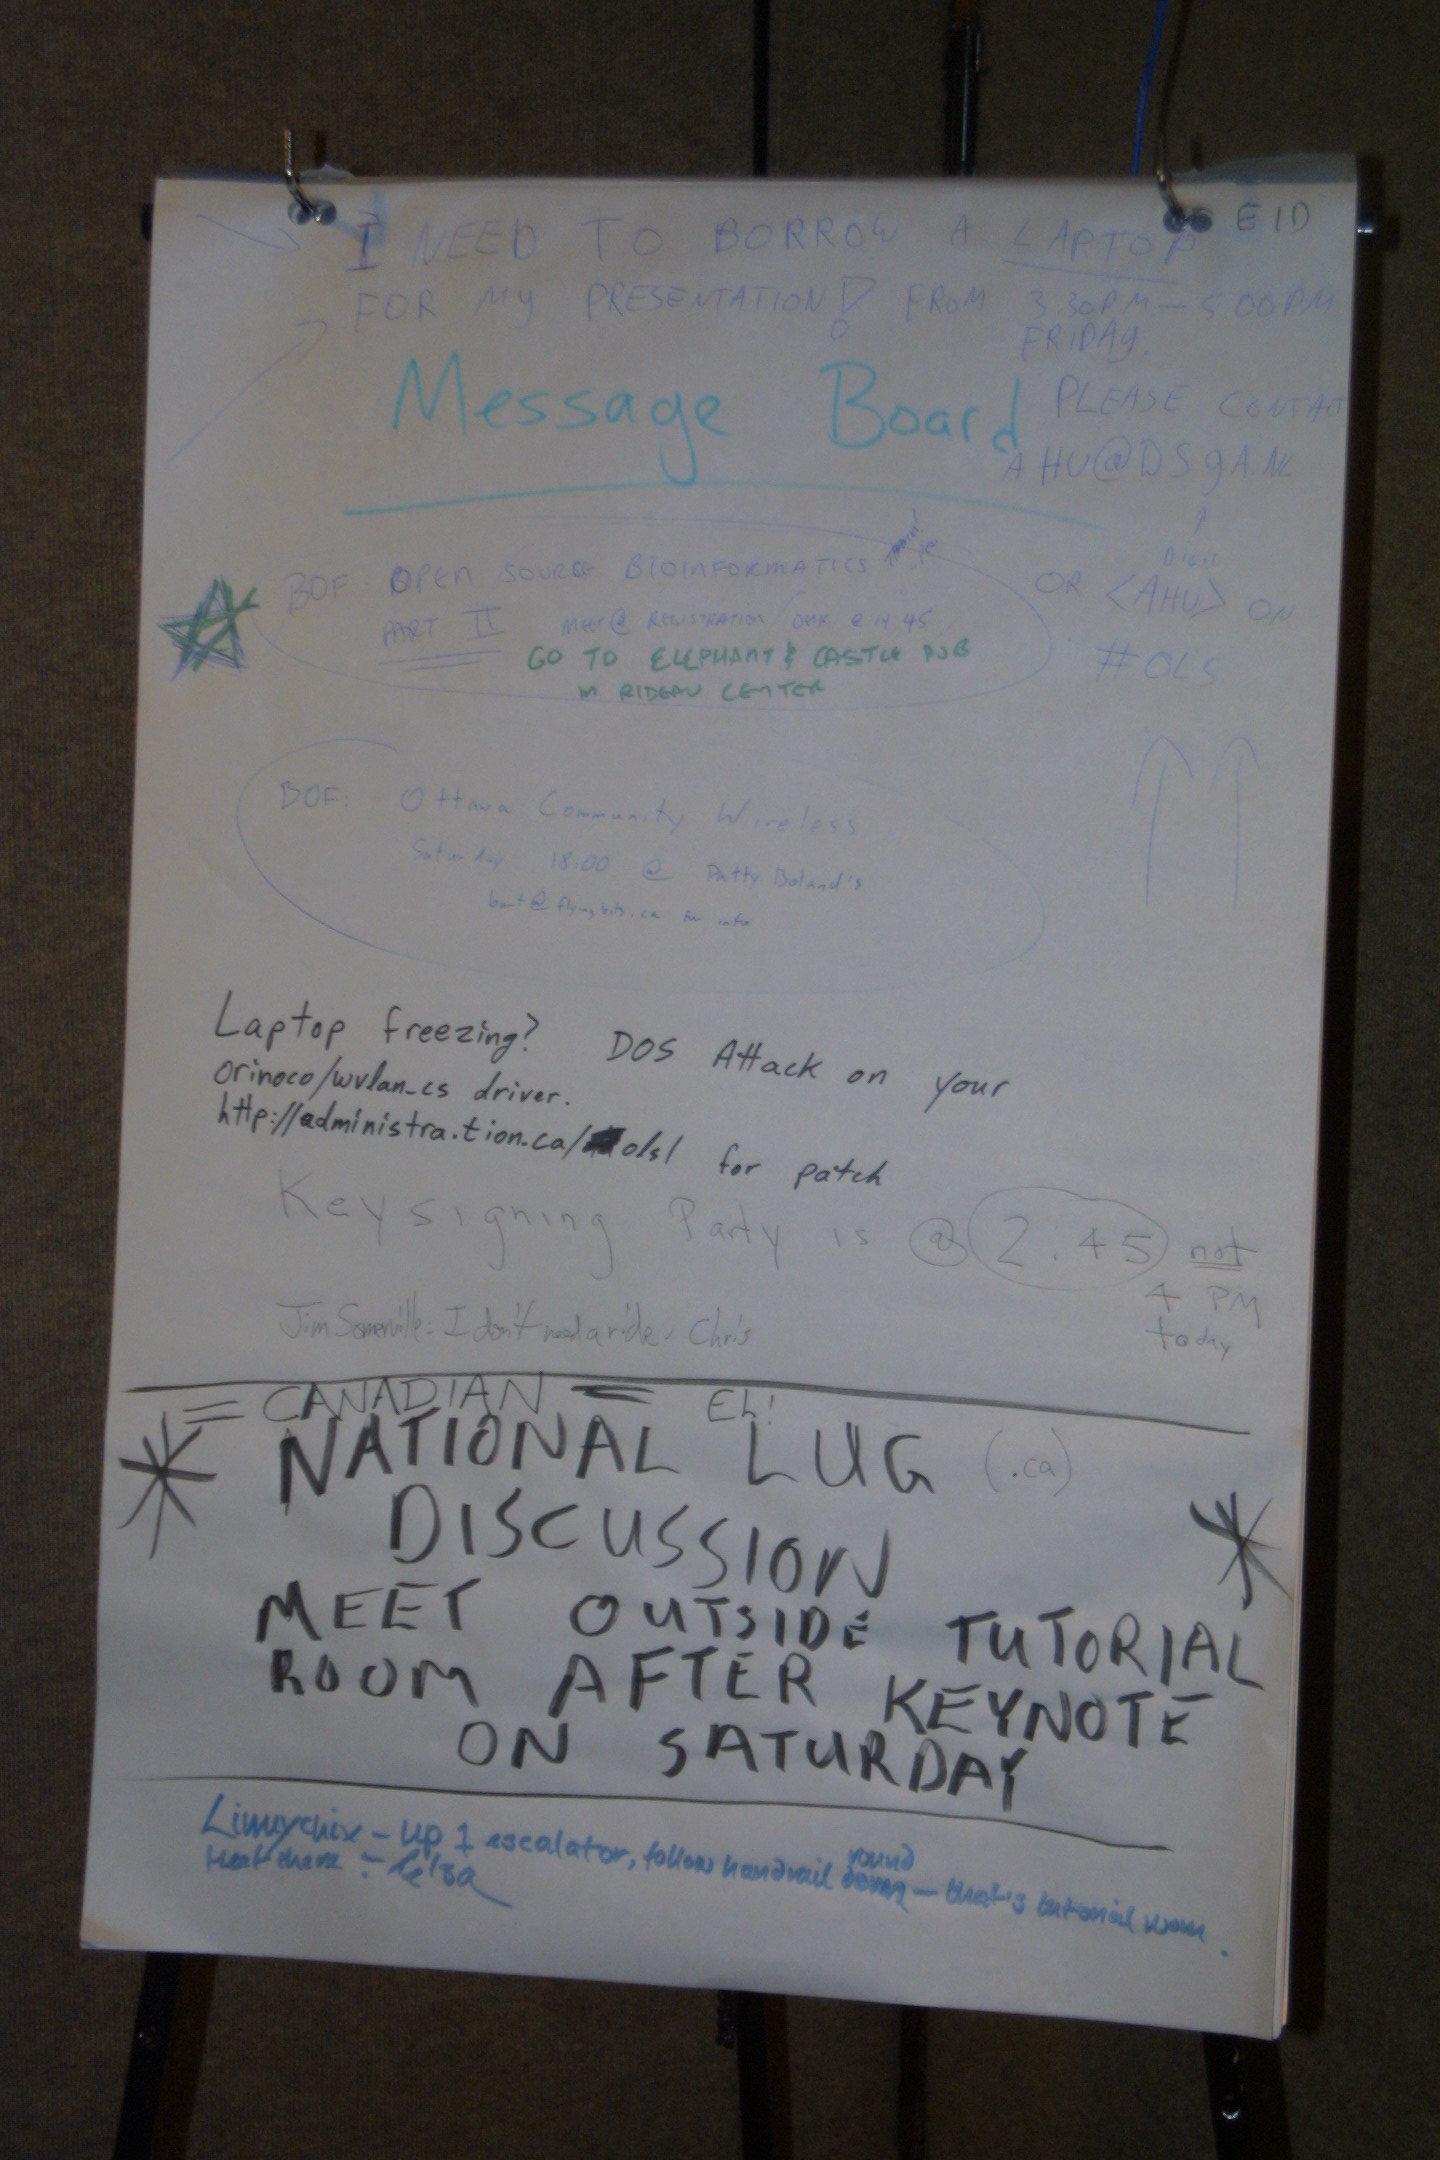 EID
I NEED TO BORROW A LAPTOP
FOR MY PRESENTATION! FROM 3.30PM - 5.00PM
FRIDAY.
Message Board
PLEASE CONTACT
AHU@DS9A.NL
↑
Digit
OR <AHU> ON
#OLS
BOF: OPEN SOURCE BIOINFORMATICS
PART II MEET @ REGISTRATION @ 14:45
GO TO ELEPHANT & CASTLE PUB
IN RIDEAU CENTER
BOF: Ottawa Community Wireless
Saturday 18:00 @ Patty Boland's
bart@flyingbits.ca for info
Laptop freezing? DOS Attack on your
orinoco/wvlan_cs driver.
http://administra.tion.ca/ols/ for patch
Keysigning Party is @ 2.45 not
4 PM
today
Jim Somerville - I don't need a ride. Chris
= CANADIAN = EH!
NATIONAL LUG (.ca)
DISCUSSION
MEET OUTSIDE TUTORIAL
ROOM AFTER KEYNOTE
ON SATURDAY
Linuxchix - up 1 escalator, follow handrail round - that's tutorial room.
Meet there :-